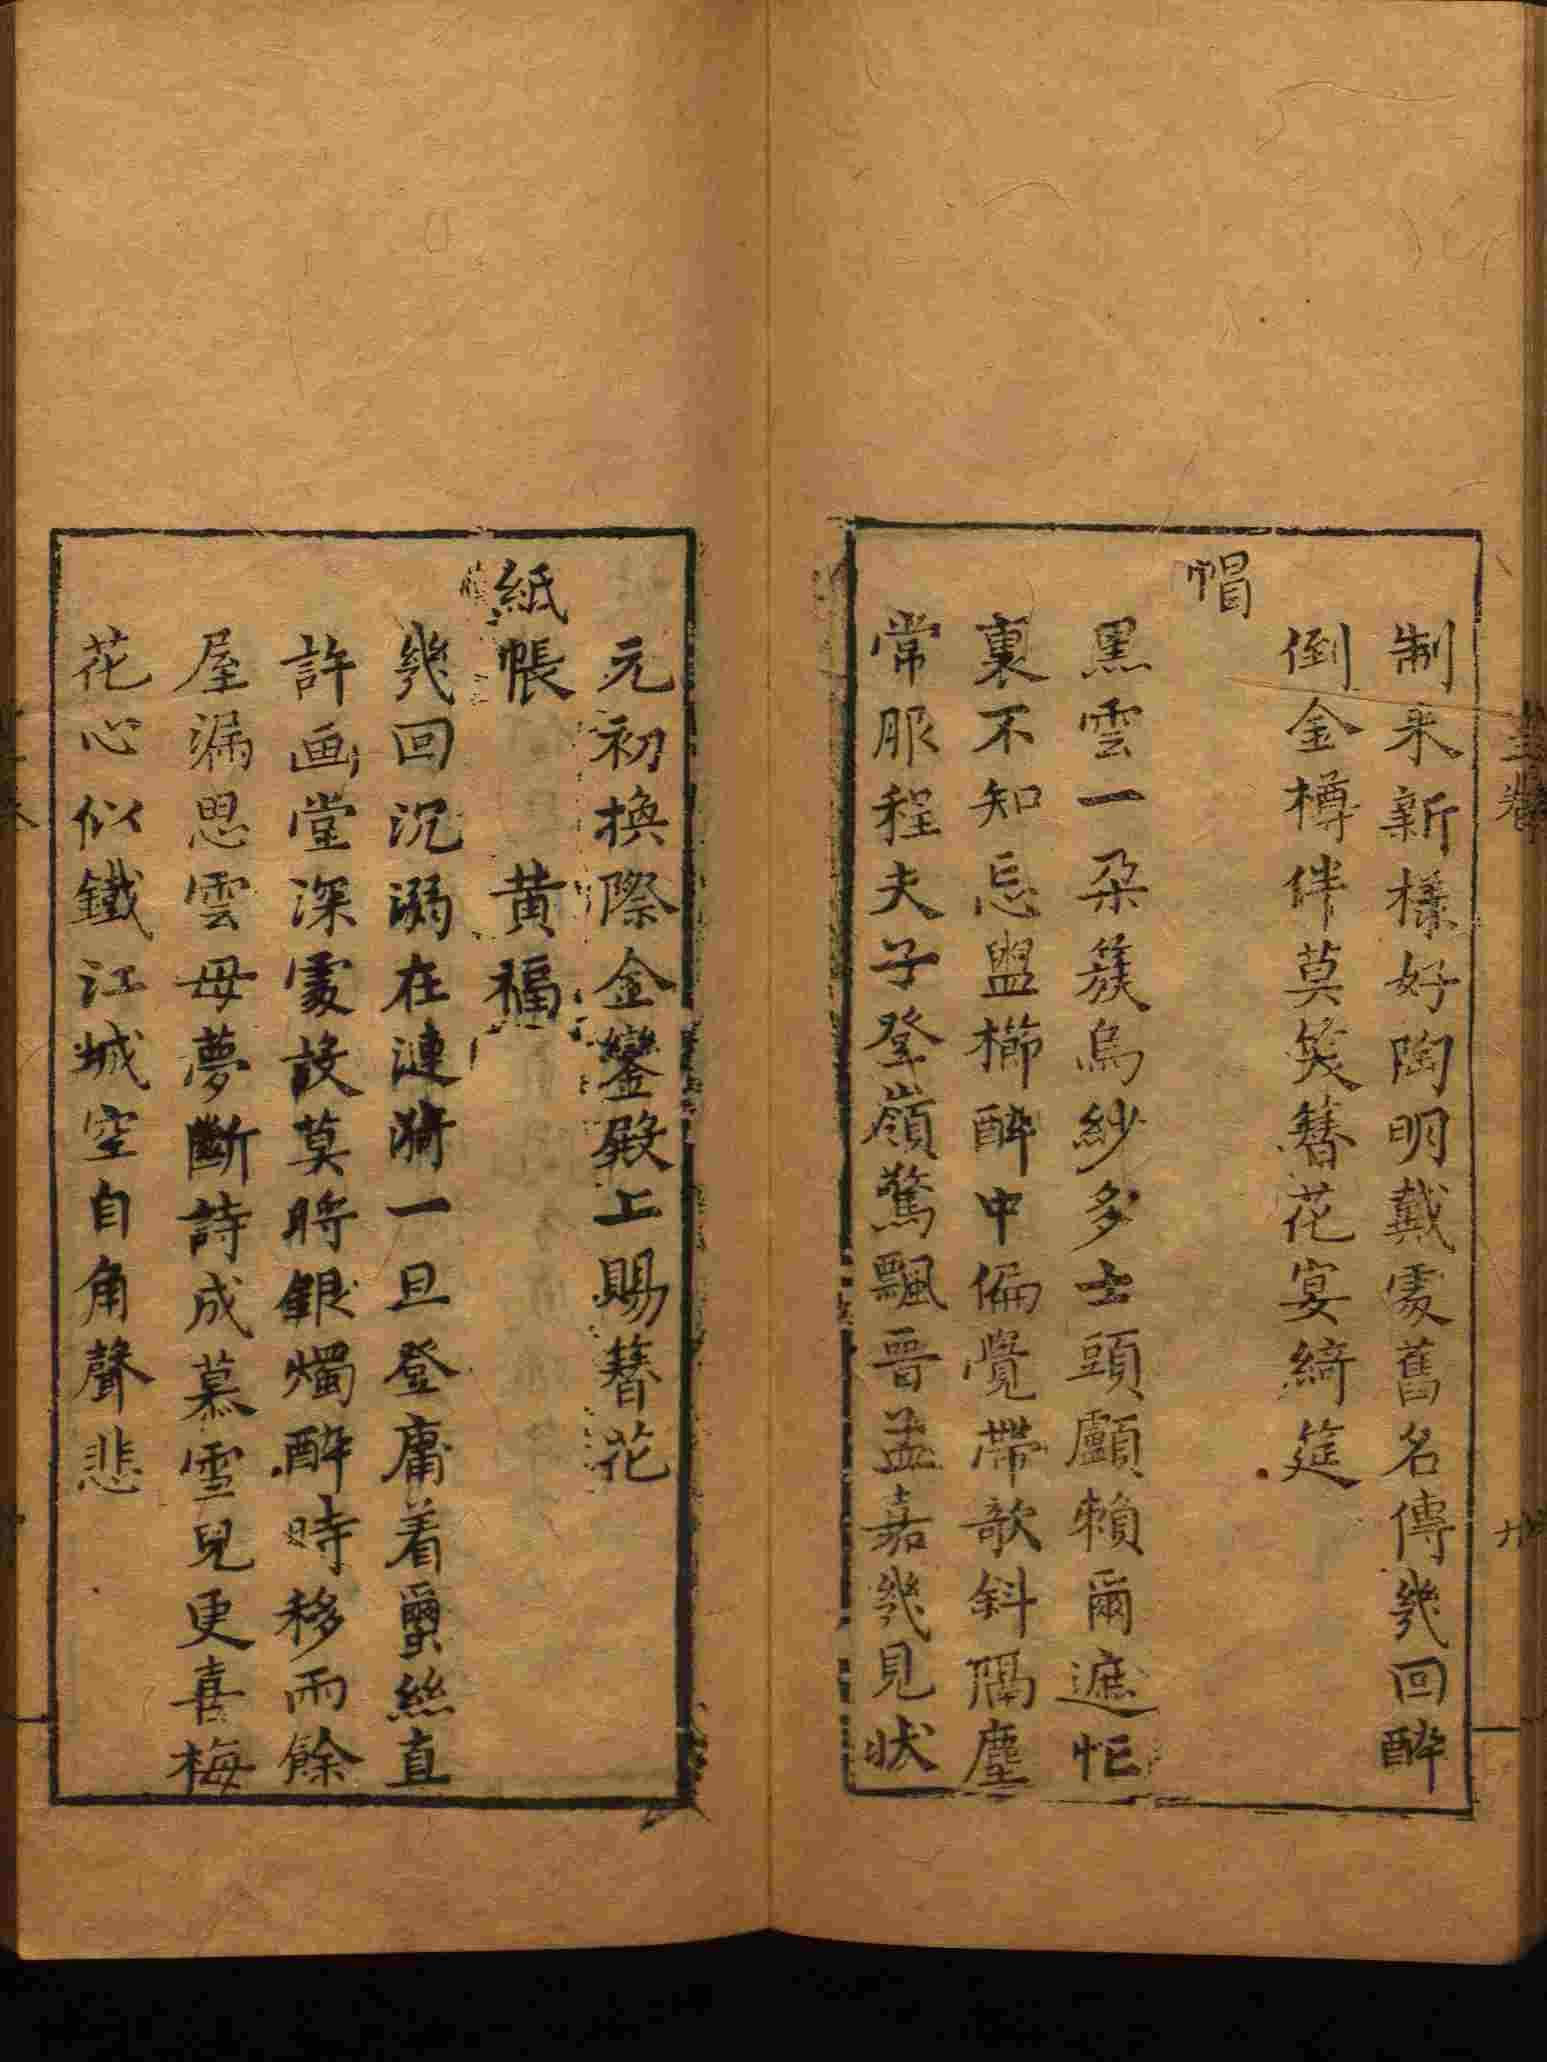 制来新樣好陶明戴處舊名傳幾回醉
倒金樽伴莫笑簪花宴綺筵
帽
黒雲一朶簇烏紗多士頭顱賴爾遮忙
裏不知忘盥櫛醉中偏覺帶欹斜隔塵
常服程夫子登嶺驚飄晋孟嘉幾見状
元初換際金鑾殿上賜簪花
紙帳 黄福
幾回沉溺在漣漪一旦登庸着蠒絲直
許画堂深處設莫將銀燭醉時移雨餘
屋漏思雲母夢斷詩成慕雪兒更喜梅
花心似鐵江城空自角聲悲